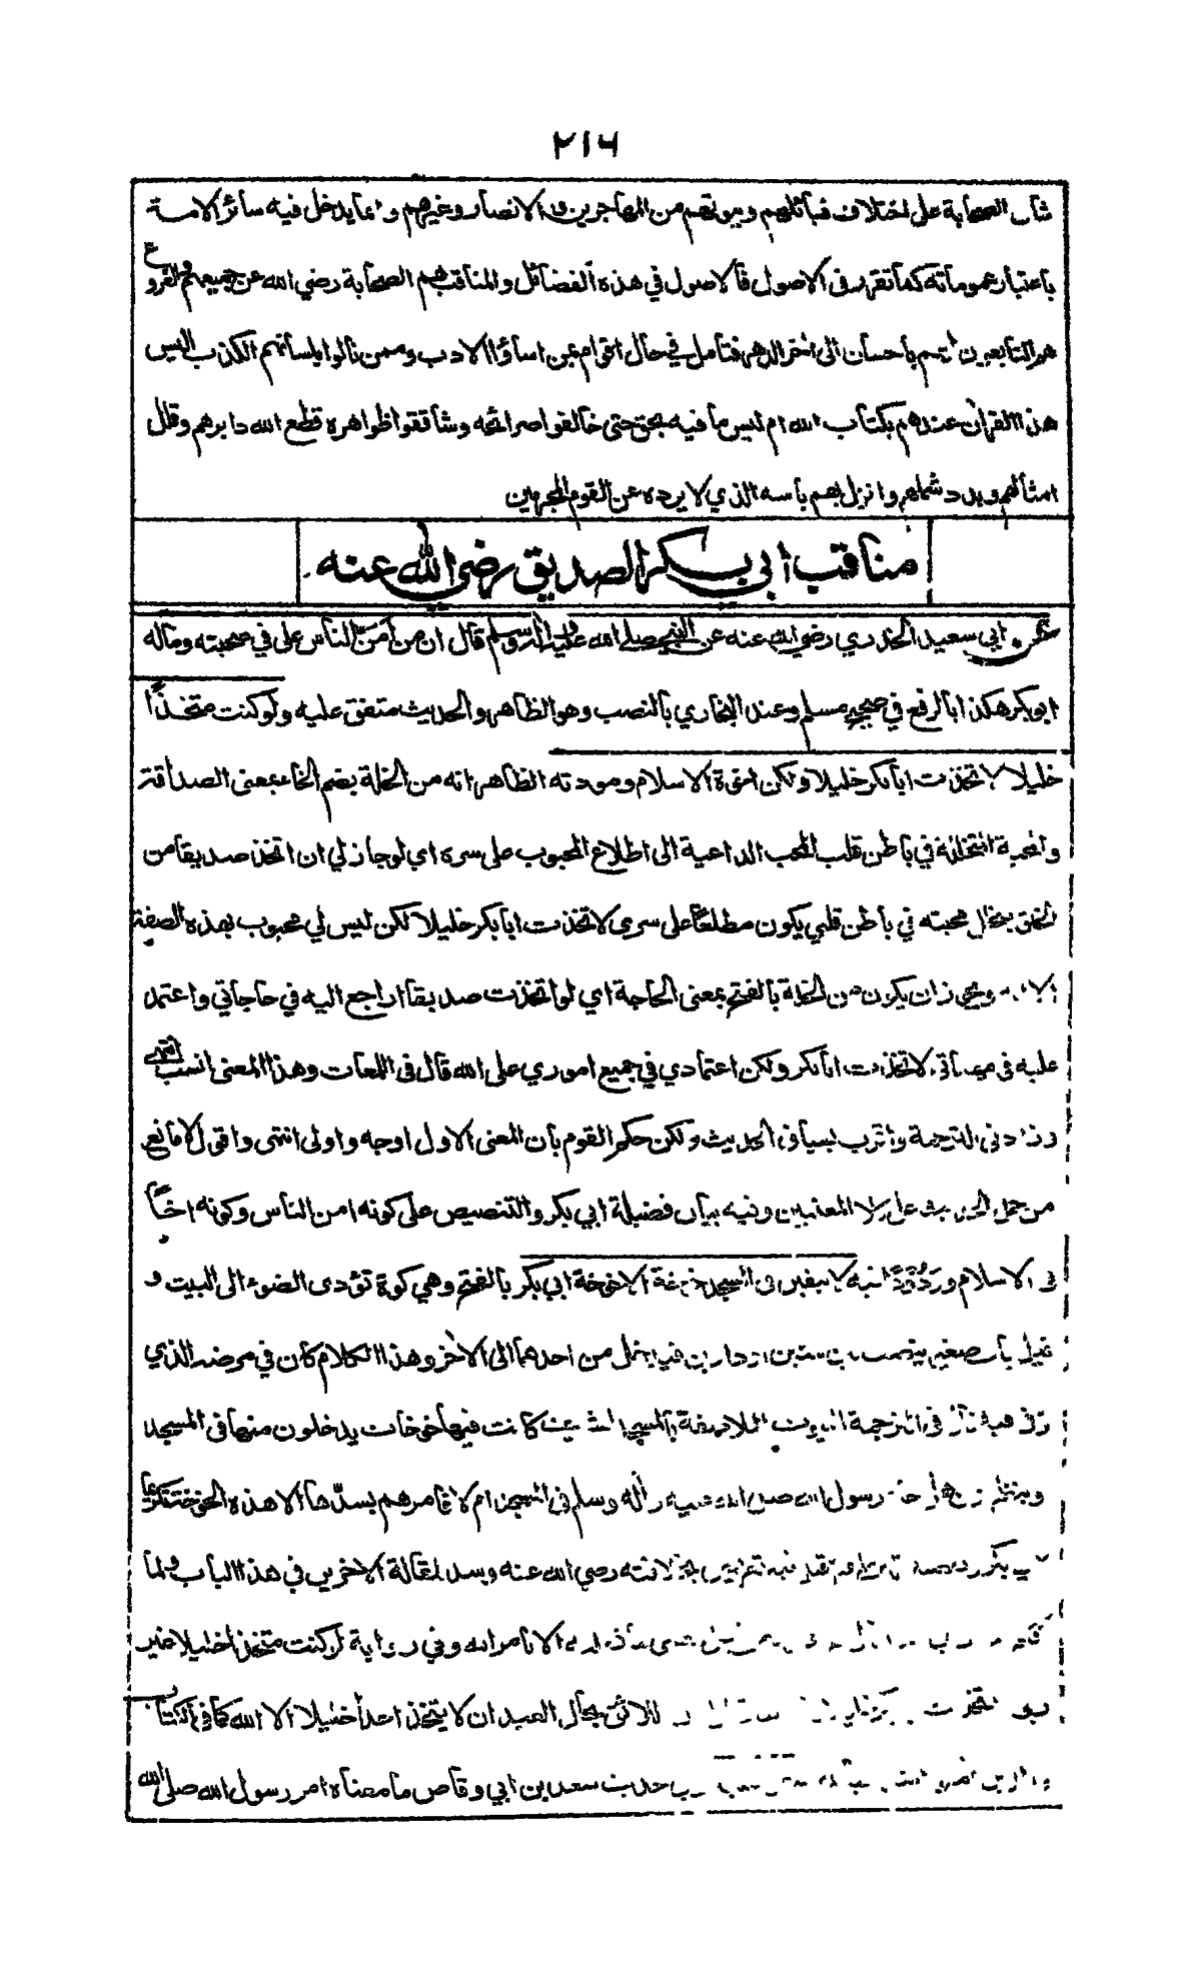 ٢١٦
شان الصحابة على اختلاف قبائلهم وبيوتهم من المهاجرين والانصار وغيرهم وانما يدخل فيه سائر الامة
باعتبار عموماته كما تقرر في الاصول فالاصول في هذه الفضائل والمناقب هم الصحابة رضي الله عن جميعهم والفروع
هم التابعين لهم باحسان الى اخر الدهر فتامل في حال اقوام ممن اساؤا الادب وممن نالوا بلسانهم الكذب اليس
هذا القران عندهم بكتاب الله ام ليس ما فيه بحق حتى خالفوا صرائحه وشاققوا ظواهره قطع الله دابرهم وقلل
امثالهم وبدد شملهم وانزل بهم باسه الذي لا يرده عن القوم المجرمين
مناقب ابي بكر الصديق رضي الله عنه
عن ابي سعيد الخدري رضي الله عنه عن النبي صلى الله عليه وآله وسلم قال ان من أمنّ الناس علي في صحبته وماله
ابو بكر هكذا بالرفع في صحيح مسلم وعند البخاري بالنصب وهو الظاهر والحديث متفق عليه ولو كنت متخذًا
خليلا لاتخذت ابا بكر خليلا ولكن اخوة الاسلام ومودته الظاهر انه من الخلة بضم الخاء بمعنى الصداقة
والمحبة المتخللة في باطن قلب المحب الداعية الى اطلاع المحبوب على سره اي لو جاز لي ان اتخذ صديقا من
الخلق يتخلل محبته في باطن قلبي يكون مطلعًا على سري لاتخذت ابا بكر خليلا لكن ليس لي محبوب بهذه الصفة
الا الله ويجوز ان يكون من الخلة بالفتح بمعنى الحاجة اي لو اتخذت صديقا اراجع اليه في حاجاتي واعتمد
عليه في مهماتي لاتخذت ابا بكر ولكن اعتمادي في جميع اموري على الله قال في اللمعات وهذا المعنى انسب انتهى
وزاد في الترجمة واقرب بسياق الحديث ولكن حكم القوم بان المعنى الاول اوجه واولى انتهى واقول لا مانع
من حمل الحديث على كلا المعنيين وفيه بيان فضيلة ابي بكر والتنصيص على كونه امن الناس وكونه اخًا
في الاسلام و فيه لا يبقين في المسجد خوخة الا خوخة ابي بكر بالفتح وهي كوة تؤدى الضوء الى البيت و
قيل باب صغير ينصب بين بيتين او دارين فيدخل من احدهما الى الاخر وهذا الكلام كان في مرضه الذي
في الترجمة البيوت الملاصقة بالمسجد كانت فيها خوخات يدخلون منها في المسجد
وينظر رسول الله صلى الله عليه وآله وسلم في المسجد ام لا فامرهم بسدّها الا هذه الخوخة تكريما
بخلافته رضي الله عنه وسد لمقالة الاخرين في هذا الباب ولما
الا بامر الله وفي رواية لو كنت متخذا خليلا غير
للائق بحال العبد ان لا يتخذ احدا خليلا الا الله كما في الكتاب
حديث سعد بن ابي وقاص ما معناه امر رسول الله صلى الله